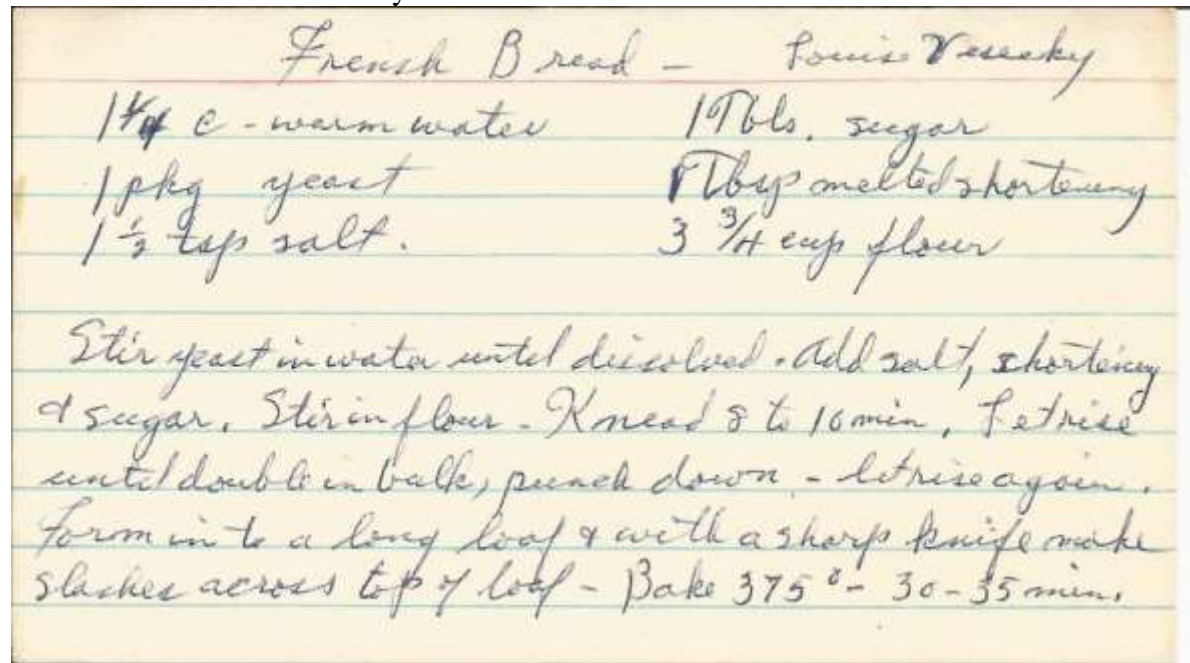 French Bread - Louise Vesecky
1 1/4 c - warm water 1 Tbls. sugar
1 pkg yeast 1 Tbsp melted shortening
1 1/2 tsp salt. 3 3/4 cup flour
Stir yeast in water until dissolved. Add salt, shortening
& sugar. Stir in flour - Knead 8 to 10 min, Let rise
until double in bulk, punch down - let rise again.
Form in to a long loaf & with a sharp knife make
slashes across top of loaf - Bake 375° - 30-35 min.